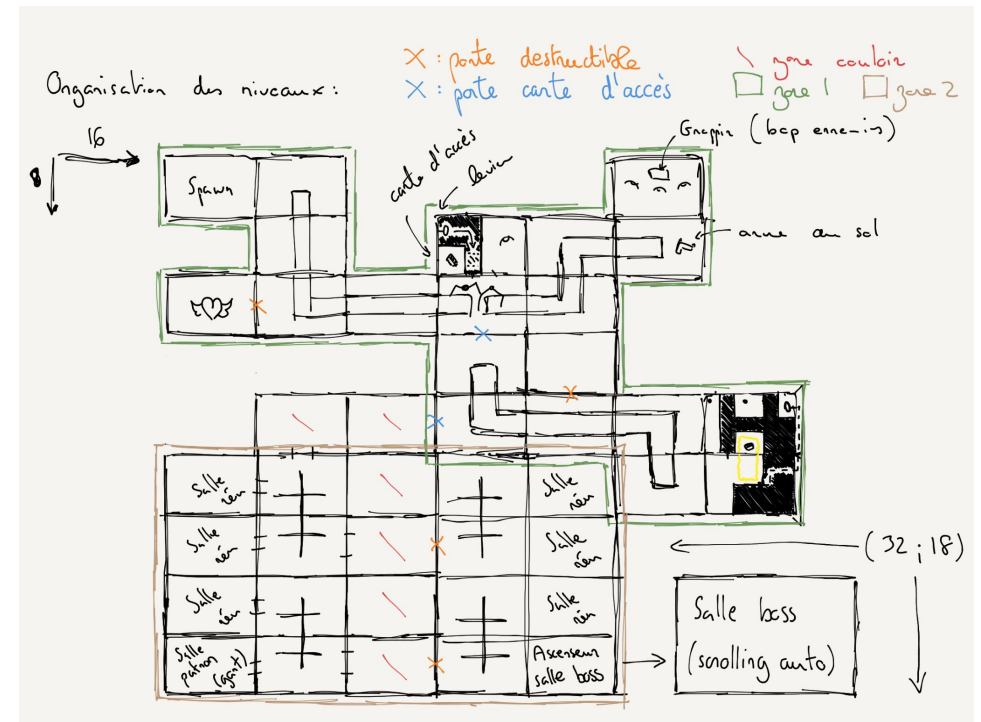 Organisation des niveaux :
X : porte destructible
X : porte carte d'accès
zone couloir
zone 1
zone 2
16
8
Spawn
carte d'accès
levier
Grappin (bcp ennemis)
arme au sol
Salle réu
Salle réu
Salle réu
Salle patron (agent)
Salle réu
Salle réu
Salle réu
Ascenseur salle boss
(32 ; 18)
Salle boss
(scrolling auto)